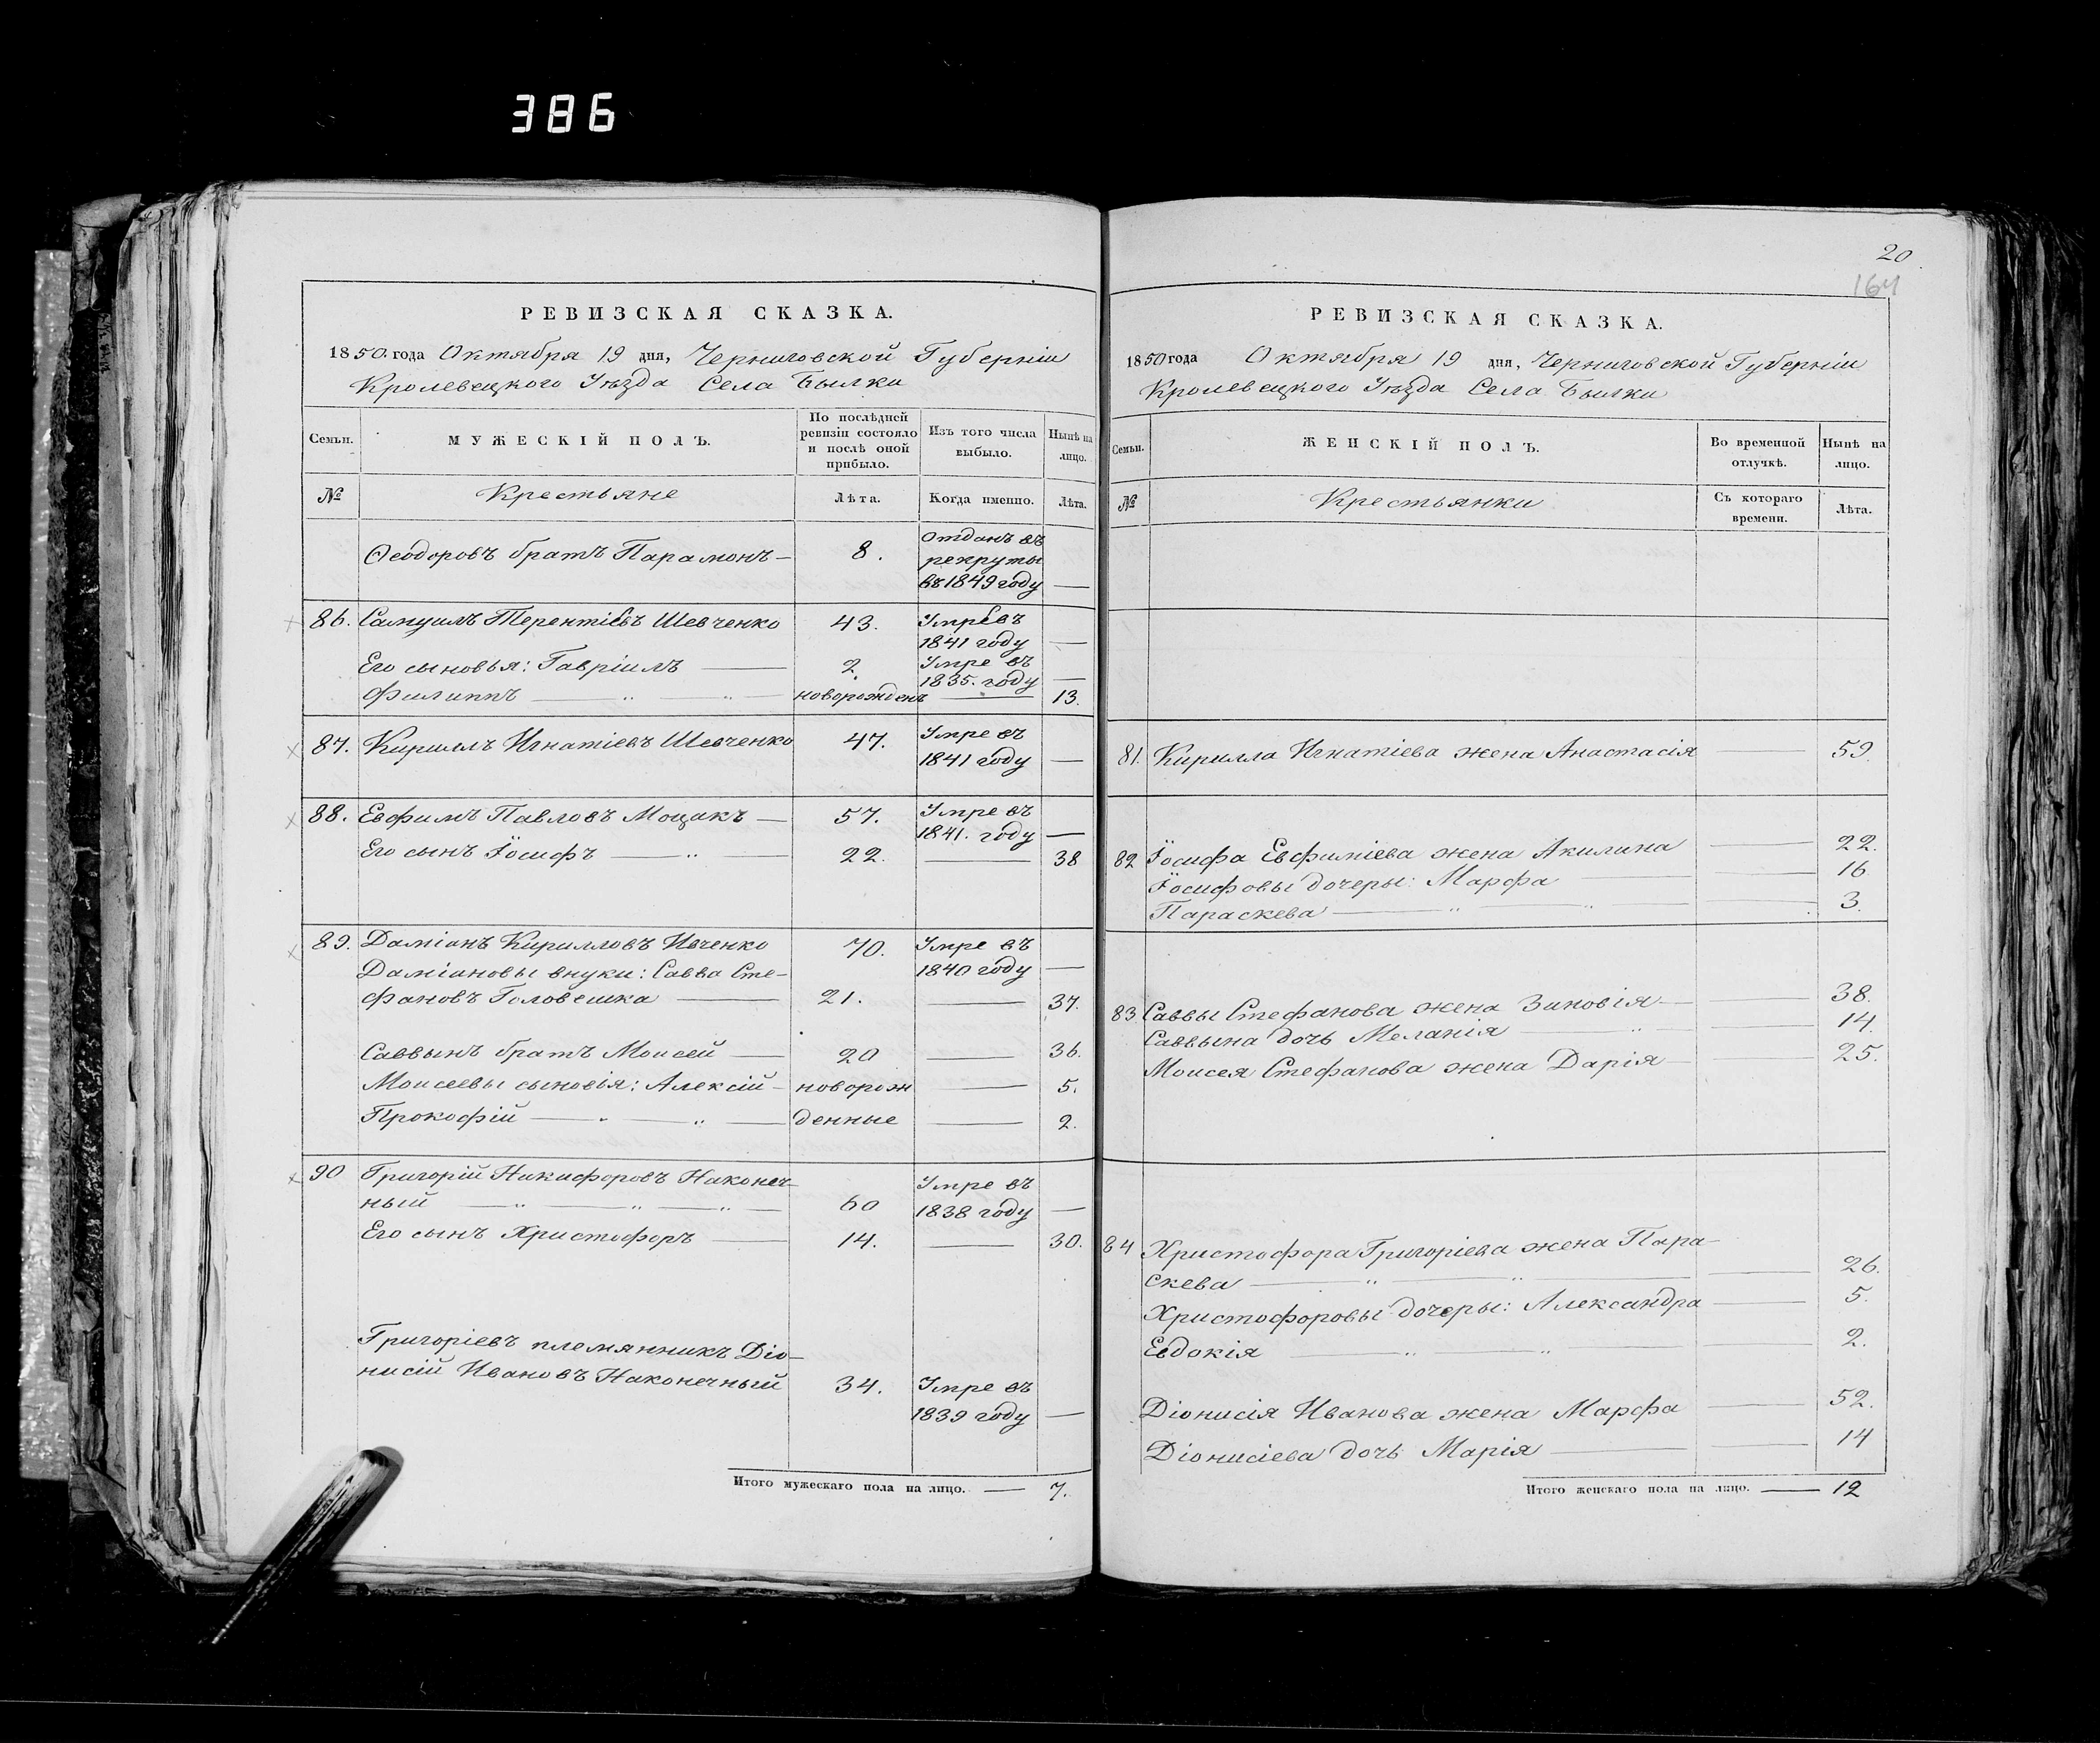 386
РЕВИЗСКАЯ СКАЗКА.
1850. года Октября 19 дня, Черниговской Губерніи
Кролевецкого Уѣзда Села Былки
Семьи.
МУЖЕСКІЙ ПОЛЪ.
По послѣдней ревизіи состояло и послѣ оной прибыло.
Изъ того числа выбыло.
Нынѣ на лицо.
№
Крестьяне
Лѣта.
Когда именно.
Лѣта.
Ѳеодоровъ братъ Парамонъ — 8. Отданъ въ
рекруты
въ 1849 году —
86. Самуилъ Терентіевъ Шевченко 43. Умре въ
1841 году —
Его сыновья: Гавріилъ — 2. Умре въ
1835. году —
Филиппъ — „ — „ — новорожденъ — 13.
87. Кириллъ Игнатіевъ Шевченко 47. Умре въ
1841 году —
88. Евфимъ Павловъ Мощакъ — 57. Умре въ
1841. году —
Его сынъ Іосифъ — „ — 22. — 38
89. Даміанъ Кирилловъ Ивченко 70. Умре въ
Даміановы внуки: Савва Сте- 1840 году —
фановъ Головешка — 21. — 37.
Саввынъ братъ Моисей — 20 — 36.
Моисеевы сыновія: Алексій — новорож — 5.
Прокофій — „ — „ — денные — 2.
90 Григорій Никифоровъ Наконеч- Умре въ
ный — „ — „ — „ — 60 1838 году —
Его сынъ Христофоръ — 14. — 30.
Григоріевъ племянникъ Діо-
нисій Ивановъ Наконечный 34. Умре въ
1839 году —
Итого мужескаго пола на лицо. — 7.
20
164
РЕВИЗСКАЯ СКАЗКА.
1850 года Октября 19 дня, Черниговской Губерніи
Кролевецкого Уѣзда Села Былки
Семьи.
ЖЕНСКІЙ ПОЛЪ.
Во временной отлучкѣ.
Нынѣ на лицо.
№
Крестьянки
Съ котораго времени.
Лѣта.
81. Кирилла Игнатіева жена Анастасія — 59.
82 Іосифа Евфиміева жена Акилина — 22.
Іосифовы дочеры: Марфа — 16
Параскева — „ — „ — 3.
83 Саввы Стефанова жена Зиновія — 38.
Саввына дочь Меланія — „ — 14.
Моисея Стефанова жена Дарія — 25.
84 Христофора Григоріева жена Пара-
скева — „ — „ — 26.
Христофоровы дочеры: Александра — 5.
Евдокія — „ — „ — 2.
Діонисія Иванова жена Марфа — 52.
Діонисіева дочь Марія — 14
Итого женскаго пола на лицо. — 12